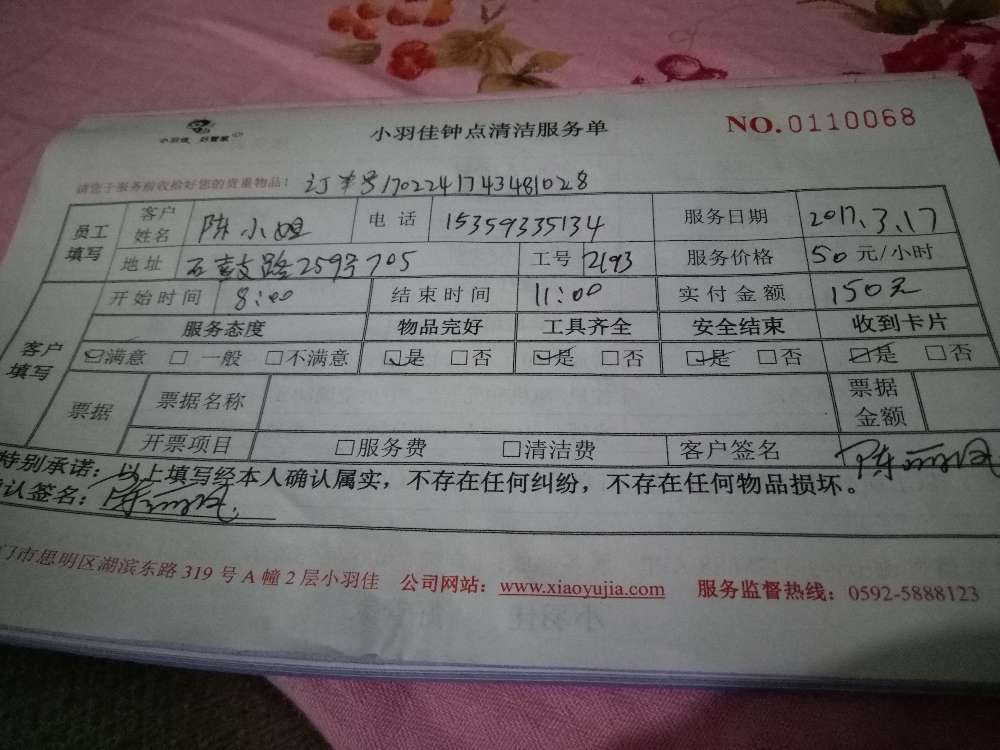 小羽佳 好管家
小羽佳钟点清洁服务单
NO.0110068
请您于服务前收拾好您的贵重物品！ 订单号1702241743481028
员工填写 客户姓名 陈小姐 电话 15359335134 服务日期 2017.3.17
地址 石鼓路259号705 工号 2193 服务价格 50元/小时
客户填写 开始时间 8:00 结束时间 11:00 实付金额 150元
服务态度 物品完好 工具齐全 安全结束 收到卡片
☑满意 □一般 □不满意 ☑是 □否 ☑是 □否 ☑是 □否 ☑是 □否
票据 票据名称 票据金额
开票项目 □服务费 □清洁费 客户签名 陈丽凤
特别承诺：以上填写经本人确认属实，不存在任何纠纷，不存在任何物品损坏。
认签名：陈丽凤
门市思明区湖滨东路319号A幢2层小羽佳 公司网站：www.xiaoyujia.com 服务监督热线：0592-5888123